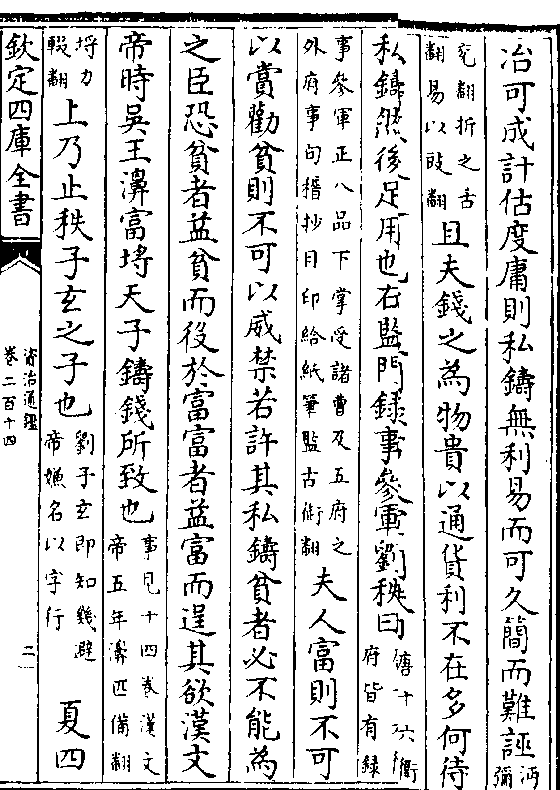 冶可成計估度庸則私鑄無利易而可久簡而難誣沔彌
兖翻折之舌翻易以豉翻且夫錢之為物貴以通貨利不在多何待
私鑄然後足用也右監門録事參軍劉秩曰唐十六衛府皆有録
事參軍正八品下掌受諸曹及五府之外府事句稽抄目印給紙筆監古銜翻夫人富則不可
以賞勸貧則不可以威禁若許其私鑄貧者必不能為
之臣恐貧者益貧而役於富富者益富而逞其欲漢文
帝時吳王濞富埓天子鑄錢所致也事見十四卷漢文帝五年濞匹備翻
埓力輟翻上乃止秩子玄之子也劉子玄即知幾避帝嫌名以字行夏四
欽定四庫全書
資治通鑑
卷二百十四
二